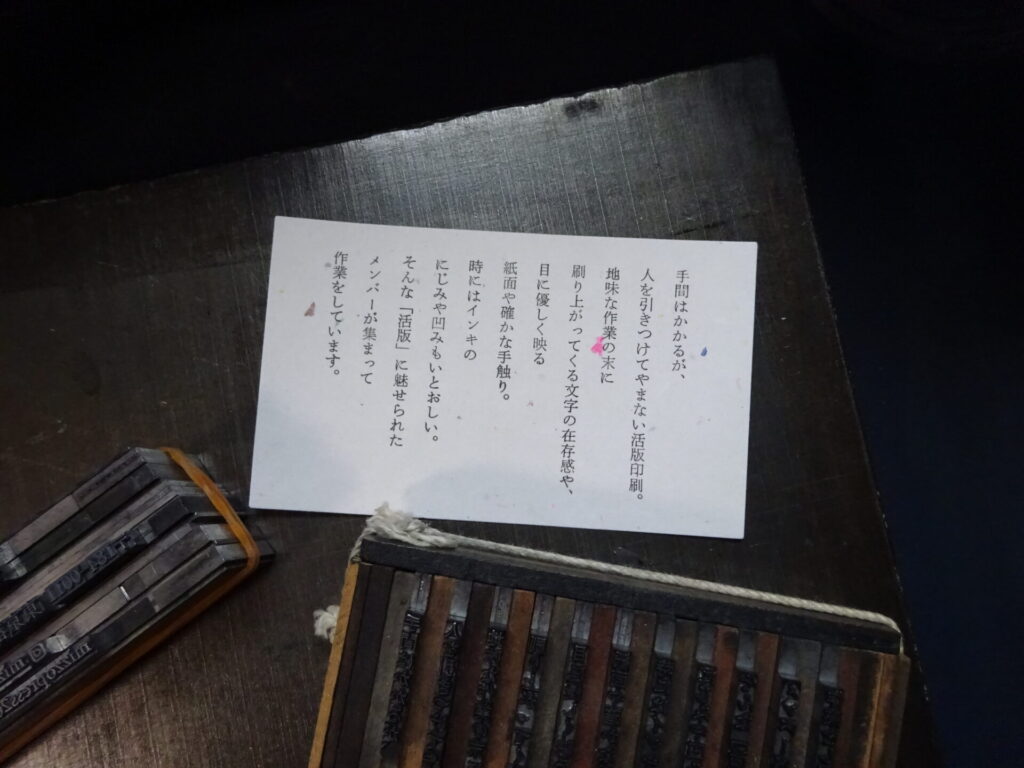 手間はかかるが、
人を引きつけてやまない活版印刷。
地味な作業の末に
刷り上がってくる文字の在存感や、
目に優しく映る
紙面や確かな手触り。
時にはインキの
にじみや凹みもいとおしい。
そんな「活版」に魅せられた
メンバーが集まって
作業をしています。